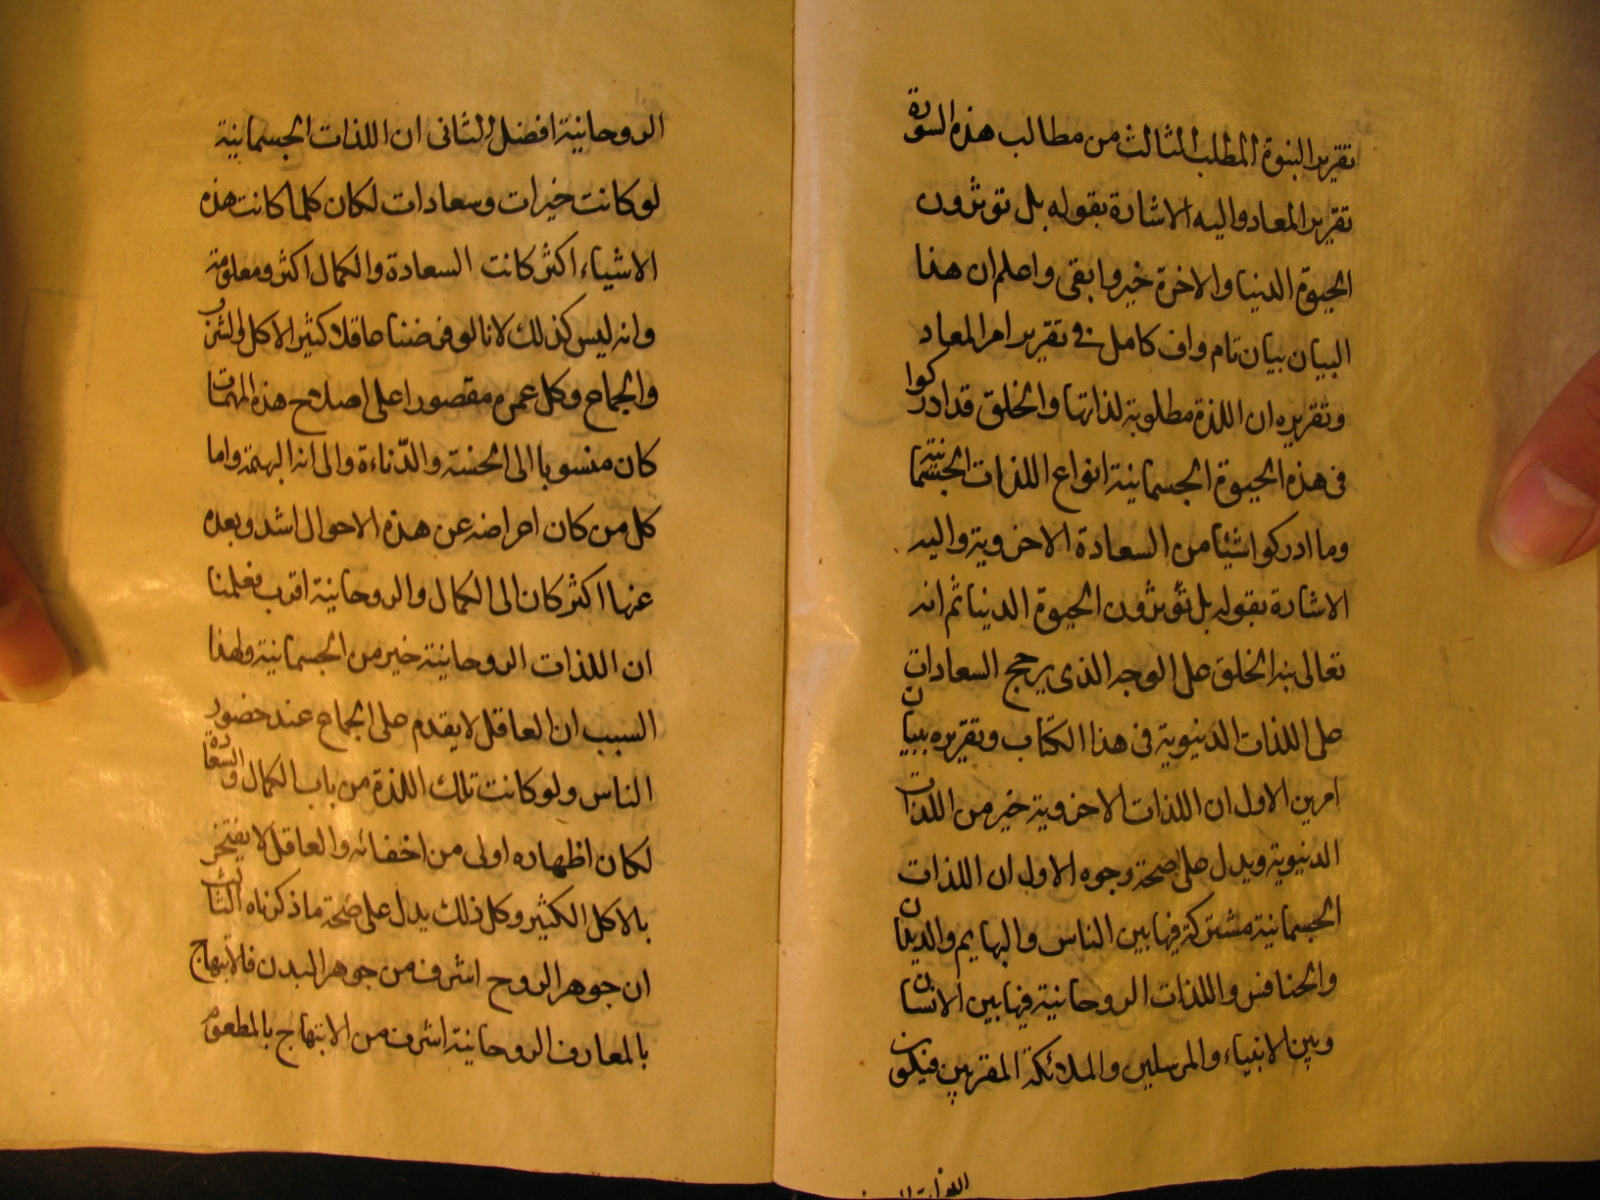 تقرير النبوة المطلب الثالث من مطالب هذه السورة
تقرير المعاد واليه الاشارة بقوله بل تؤثرون
الحيوة الدنيا والاخرة خير وابقى واعلم ان هذا
البيان بيان تام واف كامل فى تقرير امر المعاد
وتقريره ان اللذة مطلوبة لذاتها والخلق قد ادركوا
فى هذه الحيوة الجسمانية انواع اللذات الجسمانية
وما ادركوا شيئا من السعادة الاخروية واليه
الاشارة بقوله بل تؤثرون الحيوة الدنيا ثم انه
تعالى نبه الخلق على الوجه الذى يرجح السعادات
على اللذات الدنيوية فى هذا الكتاب وتقريره ببيان
امرين الاول ان اللذات الاخروية خير من اللذات
الدنيوية ويدل على صحته وجوه الاول ان اللذات
الجسمانية مشتركة فيها بين الناس والبهايم والديدان
والخنافس واللذات الروحانية فيها بين الانسان
وبين الانبياء والمرسلين والملائكة المقربين فيكون
اللذات
الروحانية افضل الثانى ان اللذات الجسمانية
لو كانت خيرات وسعادات لكان كلما كانت هذه
الاشياء اكثر كانت السعادة والكمال اكثر ومعلومة
وانه ليس كذلك لانا لو فرضنا عاقلا كثير الاكل والشرب
والجماع وكل عمره مقصورا على اصلاح هذه المهمات
كان منسوبا الى الخسة والدّناءة والى انه البهيمة واما
كل من كان اعراضه عن هذه الاحوال اشد وبعده
عنها اكثر كان الى الكمال والروحانية اقرب فعلمنا
ان اللذات الروحانية خير من الجسمانية ولهذا
السبب ان العاقل لا يقدم على الجماع عند حضور
الناس ولو كانت تلك اللذة من باب الكمال والسعادة
لكان اظهاره اولى من اخفائه والعاقل لا يفتخر
بالاكل الكثير وكل ذلك يدل على صحة ما ذكرناه الثالث
ان جوهر الروح اشرف من جوهر البدن فالابتهاج
بالمعارف الروحانية اشرف من الابتهاج بالمطعوم